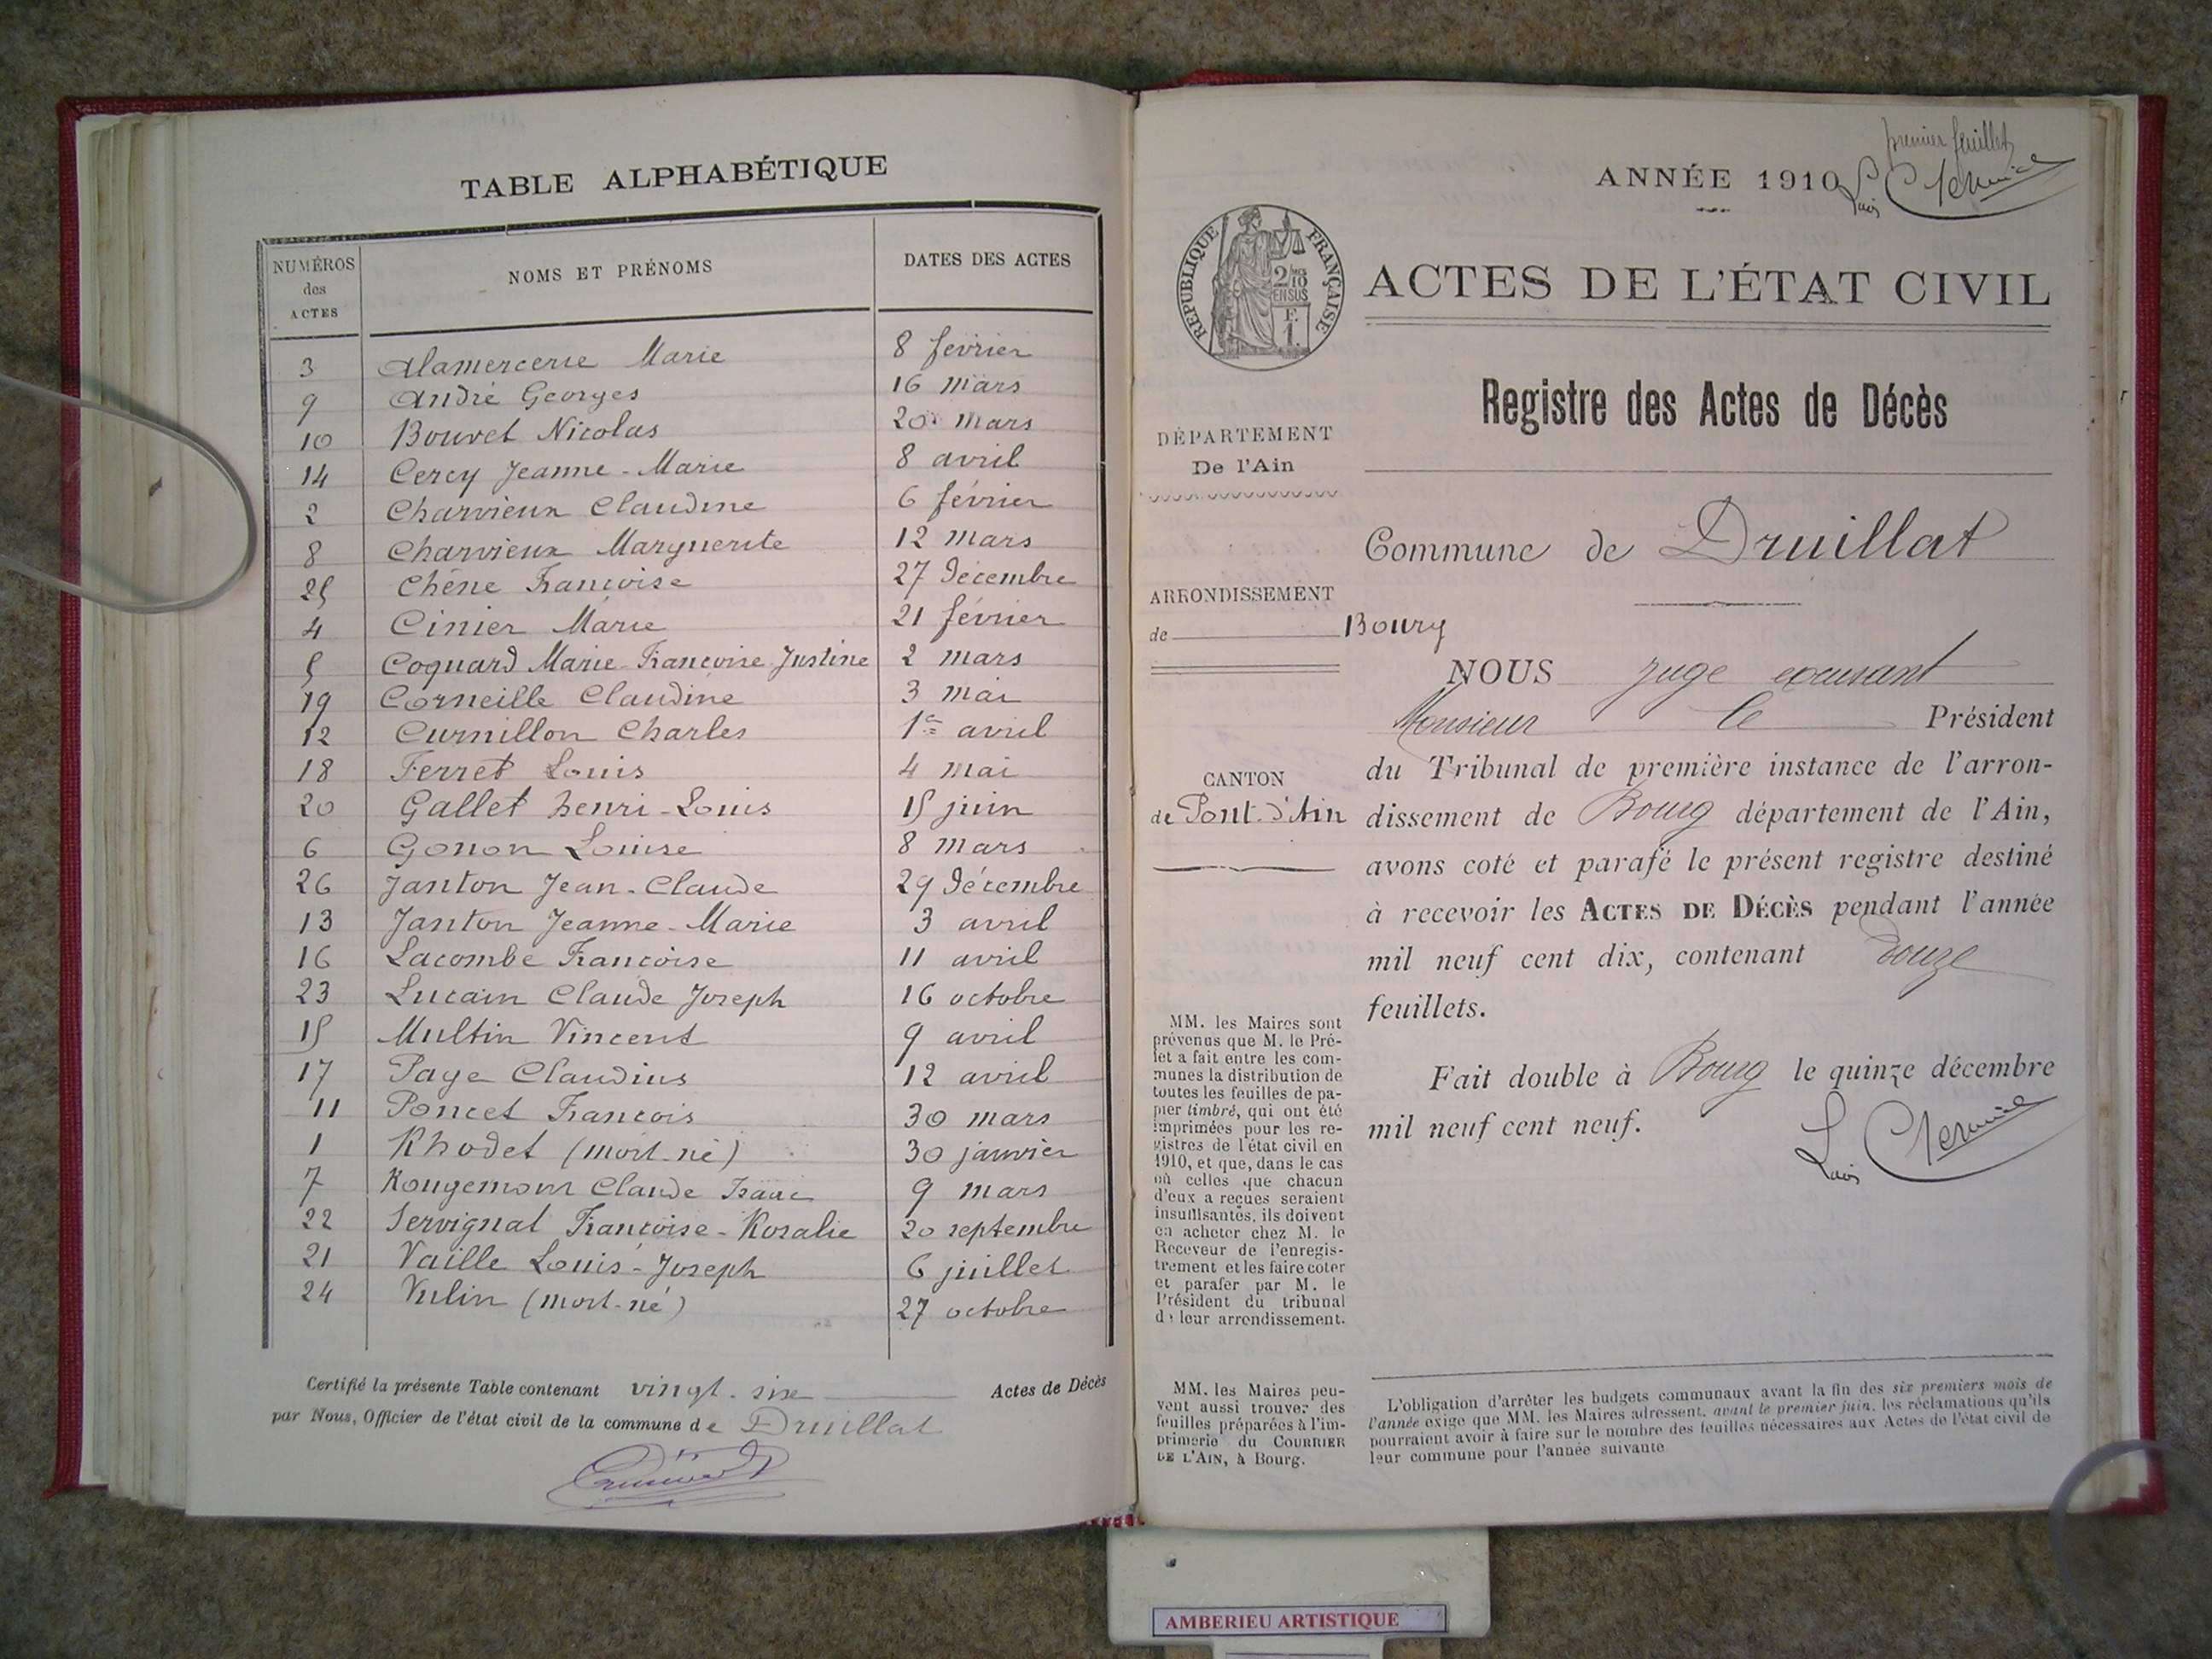 TABLE ALPHABÉTIQUE
NUMÉROS des ACTES NOMS ET PRÉNOMS DATES DES ACTES
3 Alamercerie Marie 8 février
9 André Georges 16 mars
10 Bouvet Nicolas 20 mars
14 Cercy Jeanne-Marie 8 avril
2 Charvieux Claudine 6 février
8 Charvieux Marguerite 12 mars
25 Chêne Françoise 27 décembre
4 Cinier Marie 21 février
5 Coquard Marie Françoise Justine 2 mars
19 Corneille Claudine 3 mai
12 Curnillon Charles 1er avril
18 Ferret Louis 4 mai
20 Gallet Henri-Louis 15 juin
6 Gonon Louise 8 mars
26 Janton Jean-Claude 29 décembre
13 Janton Jeanne-Marie 3 avril
16 Lacombe Françoise 11 avril
23 Lucain Claude Joseph 16 octobre
15 Multin Vincent 9 avril
17 Page Claudius 12 avril
11 Poncet François 30 mars
1 Rhodet (mort-né) 30 janvier
7 Rougemont Claude Isaac 9 mars
22 Servignat Françoise-Rosalie 20 septembre
21 Vaille Louis-Joseph 6 juillet
24 Vulin (mort-né) 27 octobre
Certifié la présente Table contenant vingt-six Actes de Décès
par Nous, Officier de l'état civil de la commune de Druillat
premier feuillet
ANNÉE 1910
RÉPUBLIQUE FRANÇAISE
2/10
EN SUS
F.
1.
ACTES DE L'ÉTAT CIVIL
Registre des Actes de Décès
DÉPARTEMENT
De l'Ain
Commune de Druillat
ARRONDISSEMENT
de Bourg
CANTON
de Pont-d'Ain
NOUS juge excusant
Monsieur le Président
du Tribunal de première instance de l'arron-
dissement de Bourg département de l'Ain,
avons coté et parafé le présent registre destiné
à recevoir les ACTES DE DÉCÈS pendant l'année
mil neuf cent dix, contenant douze
feuillets.
Fait double à Bourg le quinze décembre
mil neuf cent neuf.
MM. les Maires sont
prévenus que M. le Pré-
fet a fait entre les com-
munes la distribution de
toutes les feuilles de pa-
pier timbré, qui ont été
imprimées pour les re-
gistres de l'état civil en
1910, et que, dans le cas
où celles que chacun
d'eux a reçues seraient
insuffisantes, ils doivent
en acheter chez M. le
Receveur de l'enregis-
trement et les faire coter
et parafer par M. le
Président du tribunal
de leur arrondissement.
MM. les Maires peu-
vent aussi trouver des
feuilles préparées à l'im-
primerie du COURRIER
DE L'AIN, à Bourg.
L'obligation d'arrêter les budgets communaux avant la fin des six premiers mois de
l'année exige que MM. les Maires adressent, avant le premier juin, les réclamations qu'ils
pourraient avoir à faire sur le nombre des feuilles nécessaires aux Actes de l'état civil de
leur commune pour l'année suivante
AMBERIEU ARTISTIQUE